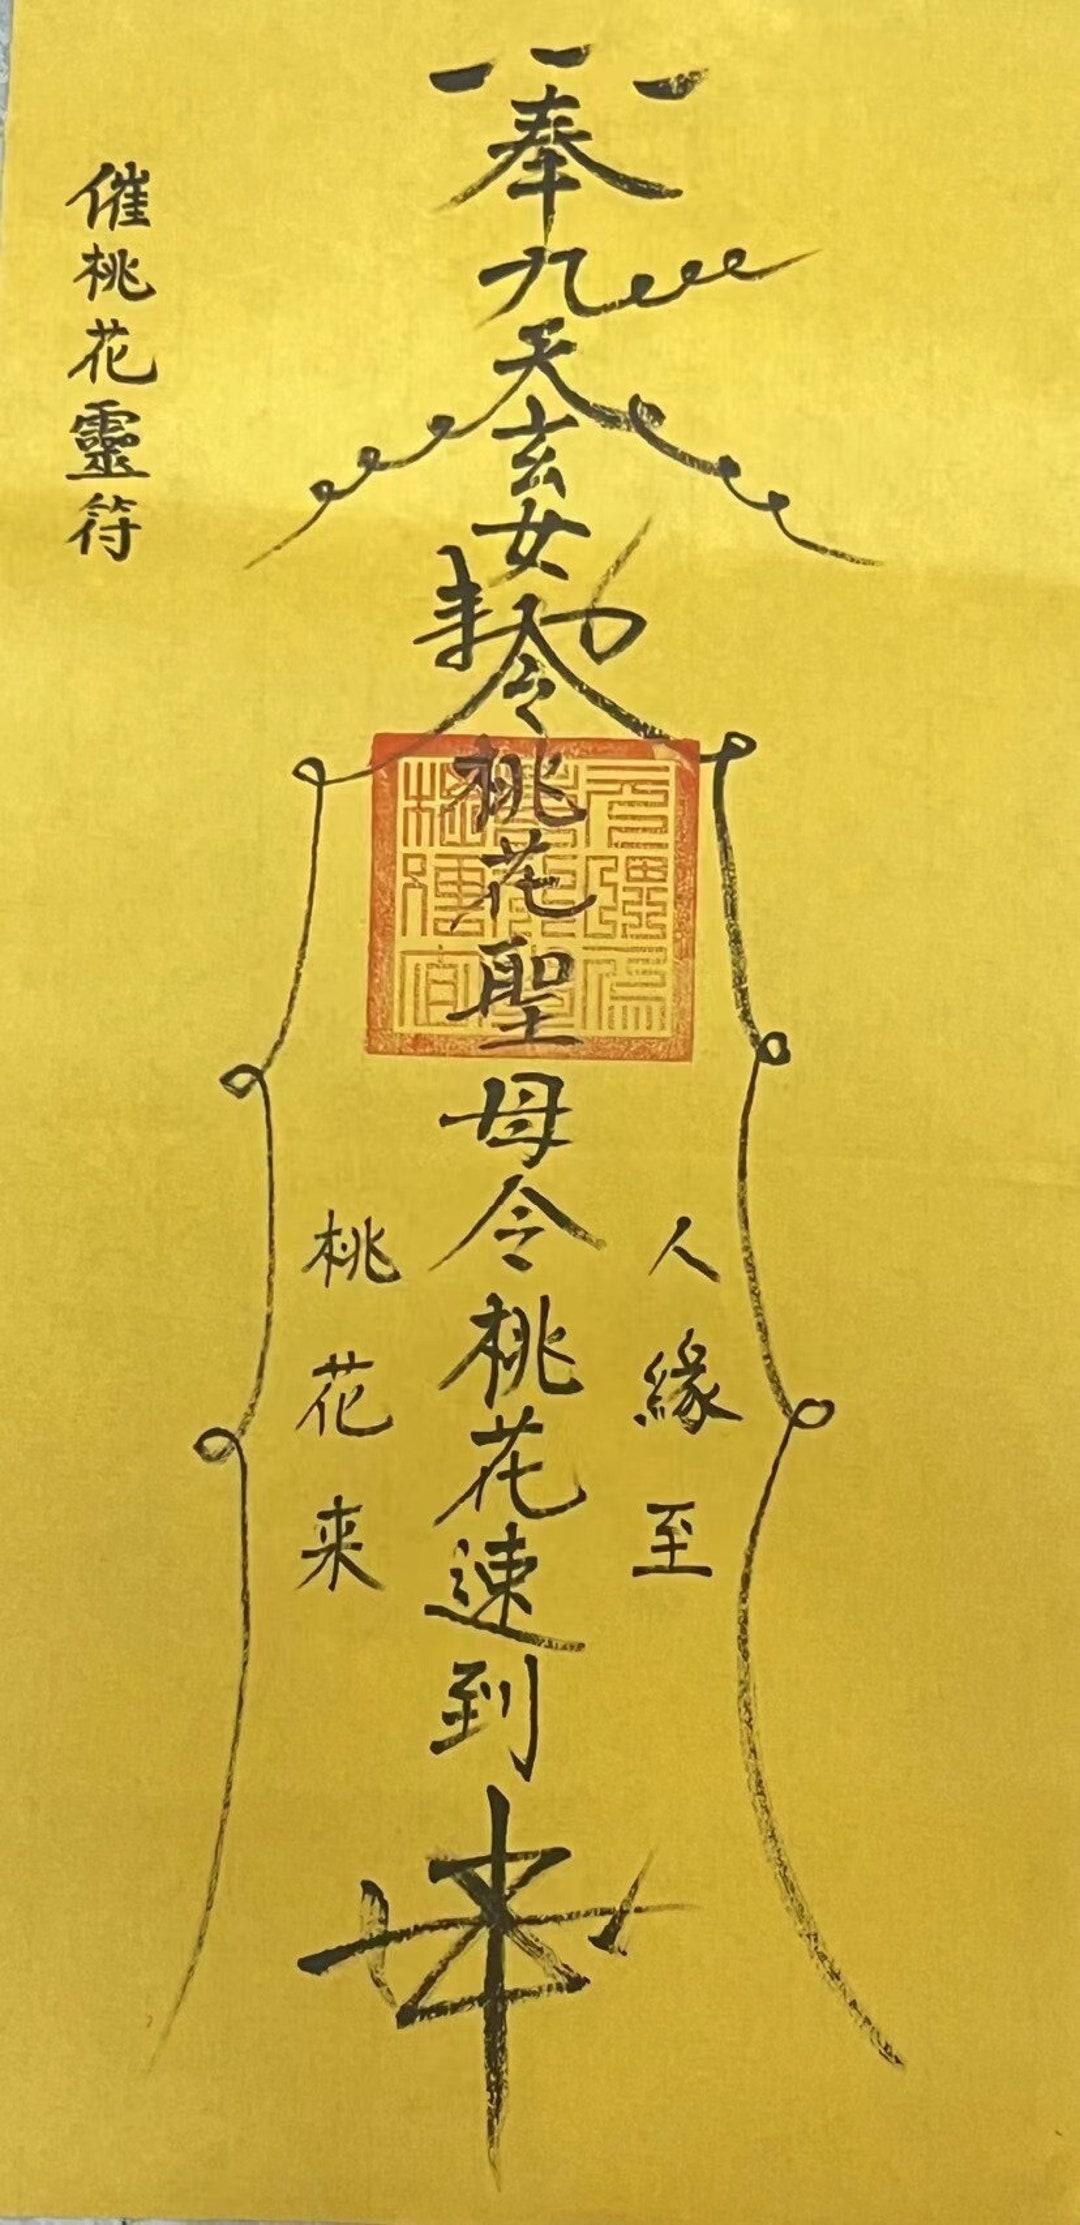 催桃花靈符
奉九天玄女令桃花聖母令桃花速到
人緣至
桃花来